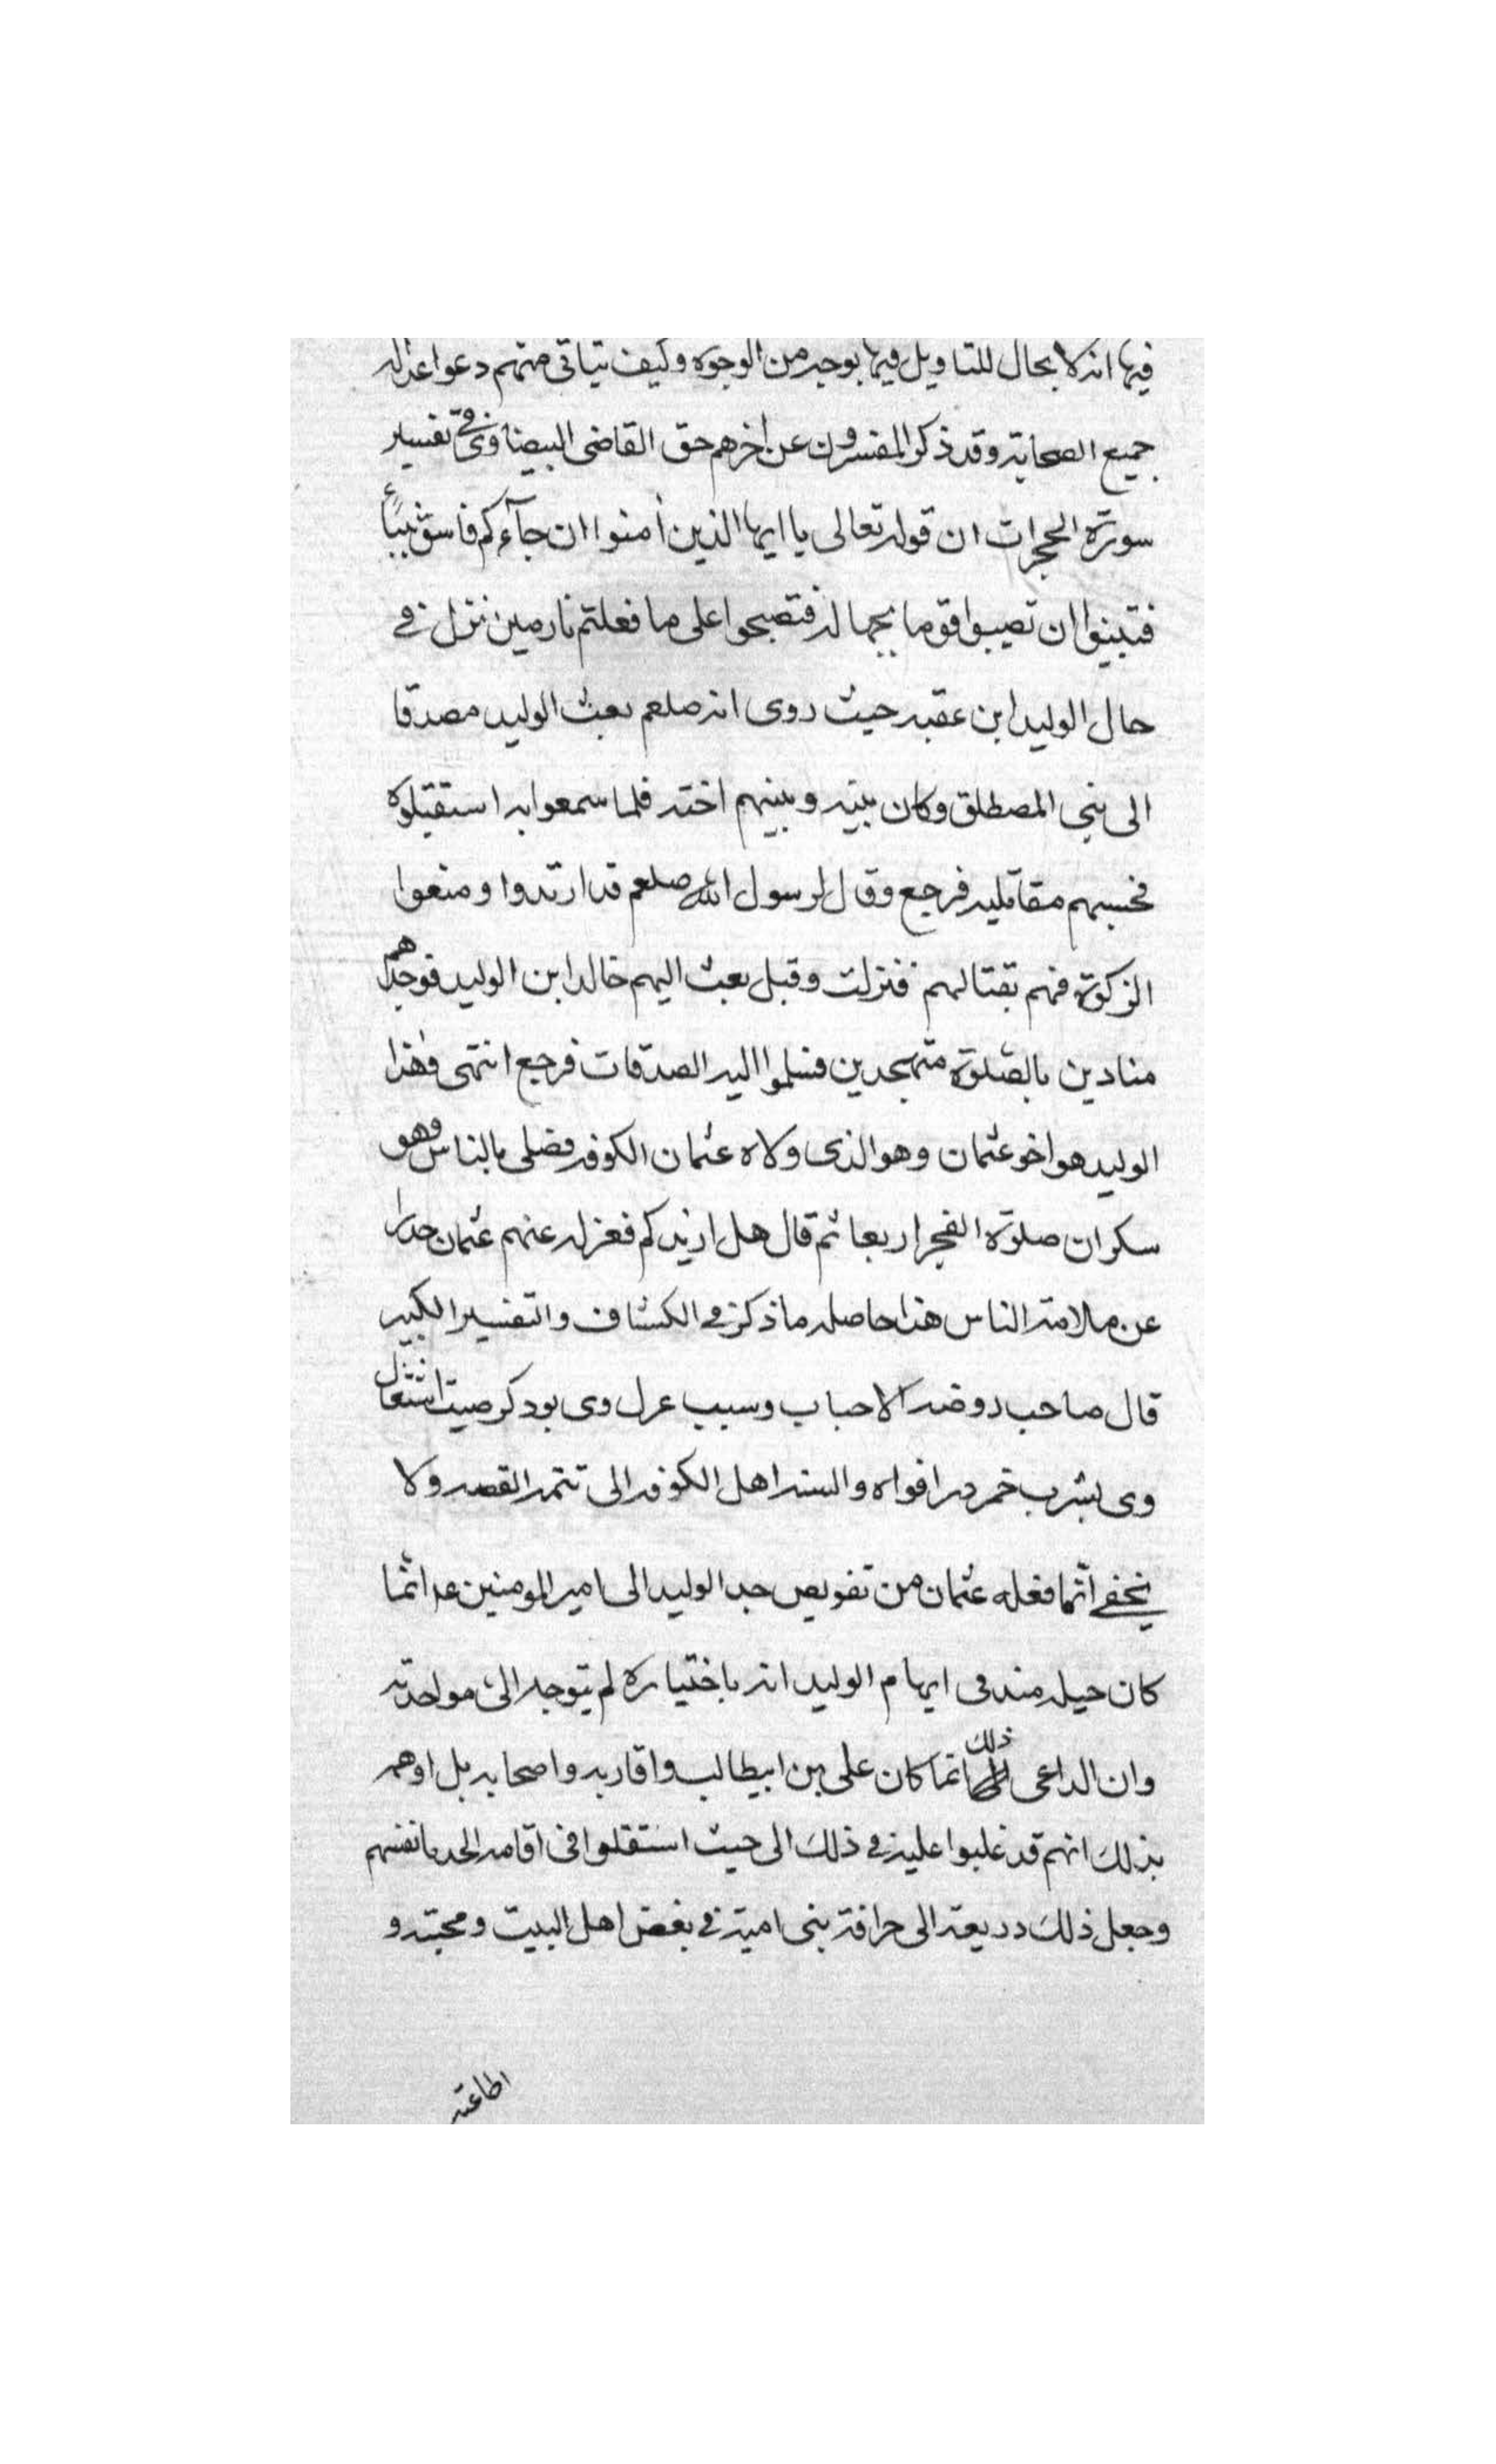 فيها انه لا مجال للتاويل فيها بوجه من الوجوه وكيف يتاتى منهم دعوا عدالة
جميع الصحابة وقد ذكر المفسرون عن اخرهم حتى القاضى البيضاوى فى تفسير
سورة الحجرات ان قوله تعالى يا ايها الذين اٰمنوا ان جآءكم فاسق بنبأٍ
فتبينوا ان تصيبوا قوما بجهالة فتصبحوا على ما فعلتم نادمين نزل فى
حال الوليد ابن عقبه حيث روى انه صلعم بعث الوليد مصدقا
الى بنى المصطلق وكان بينه وبينهم احنة فلما سمعوا به استقبلوه
فحسبهم مقاتليه فرجع وقال لرسول الله صلعم قد ارتدوا ومنعوا
الزكوة فهم بقتالهم فنزلت وقيل بعث اليهم خالد ابن الوليد فوجدهم
منادين بالصلوة متهجدين فسلموا اليه الصدقات فرجع انتهى وهذا
الوليد هو اخو عثمان وهو الذى ولاه عثمان الكوفه فصلى بالناس وهو
سكران صلوة الفجر اربعا ثم قال هل ازيدكم فعزله عنهم عثمان حذرا
عن ملامة الناس هذا حاصل ما ذكر فى الكشاف والتفسير الكبير
قال صاحب روضة الاحباب وسبب عزل وى بود كه صيت اشتغال
وى بشرب خمر در افواه والسنه اهل الكوفه الى تتمة القصه ولا
يخفى انما فعله عثمان من تفويض حد الوليد الى امير المومنين ع انما
كان حيلة منه فى ايهام الوليد انه باختياره لم يتوجه الى
وان الداعى ذلك انما كان على بن ابيطالب واقاربه واصحابه بل اوهم
بذلك انهم قد غلبوا عليه فى ذلك الى حيث استقلوا فى اقامة الحد بانفسهم
وجعل ذلك ذريعة الى بنى امية فى بغض اهل البيت ومحبته و
اطاعته